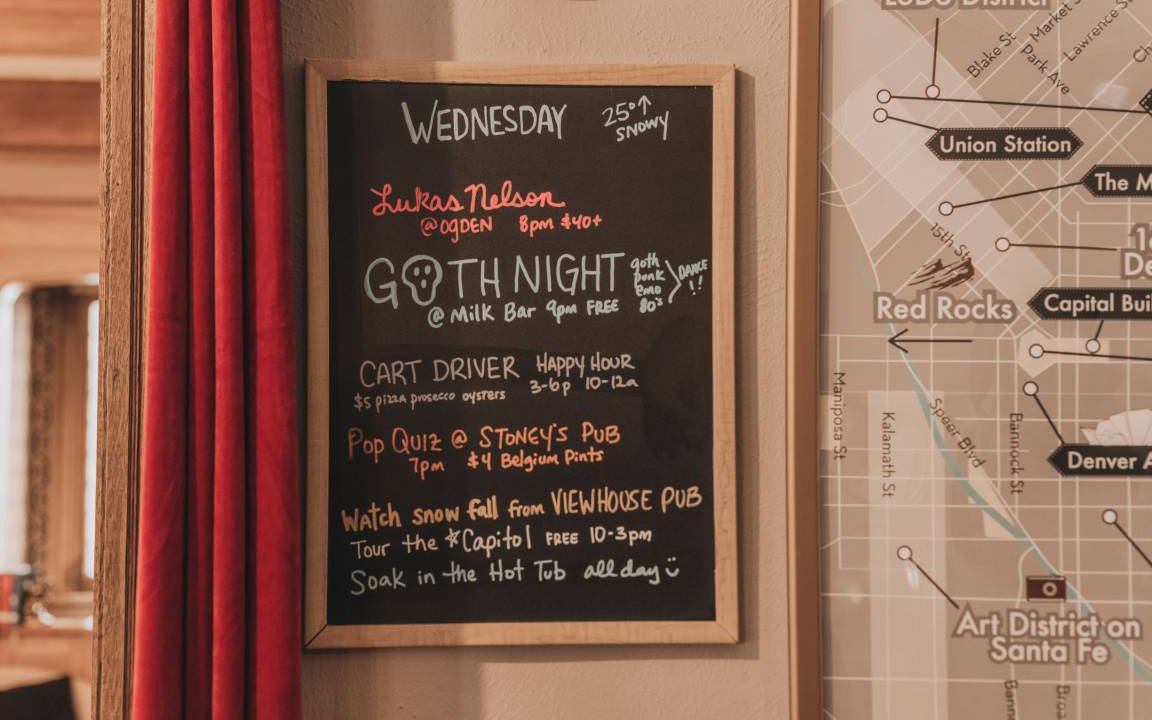 WEDNESDAY
25°↑
SNOWY
Lukas Nelson
@ OGDEN 8pm $40+
GOTH NIGHT
goth
punk
emo
80's
DANCE
!!
@ Milk Bar 9pm FREE
CART DRIVER HAPPY HOUR
3-6p 10-12a
$5 pizza prosecco oysters
Pop Quiz @ STONEY'S PUB
7pm $4 Belgium Pints
Watch snow fall from VIEWHOUSE PUB
Tour the Capitol FREE 10-3pm
Soak in the Hot Tub all day
LoDo District
Blake St
Market S
Lawrence S
Park Ave
Union Station
The M
15th St
De
Red Rocks
Capital Buil
Mariposa St
Kalamath St
Speer Blvd
Bannock St
Denver A
Art District on
Santa Fe
Bann